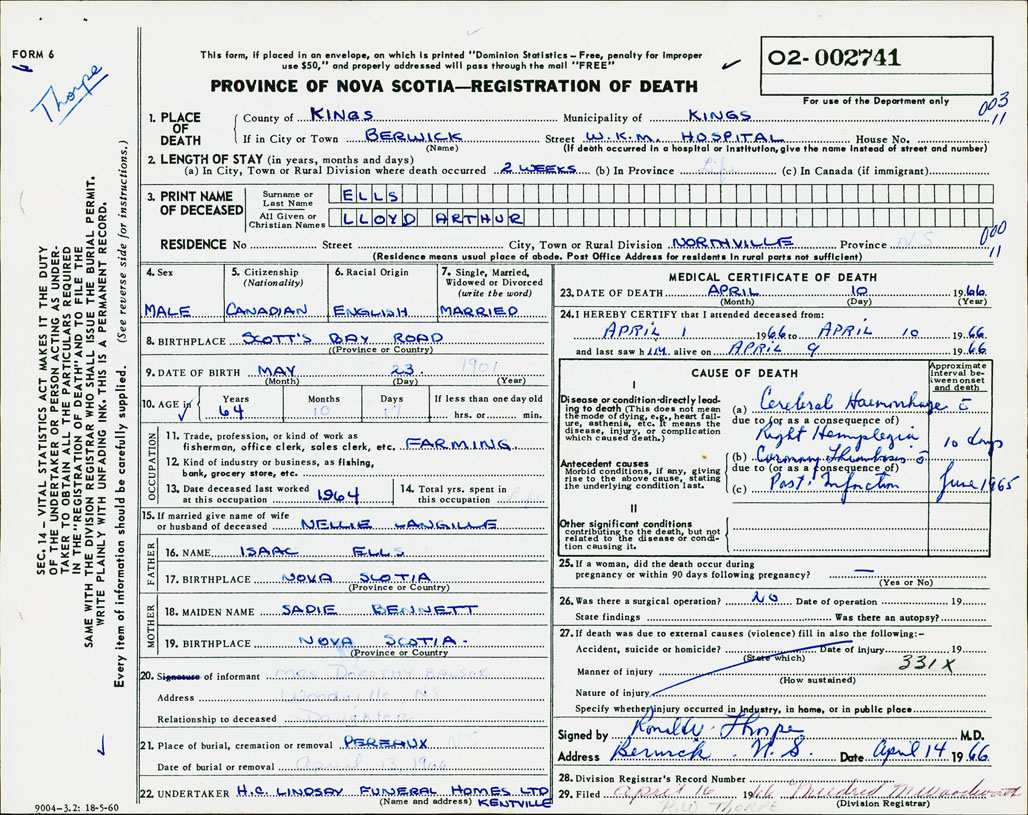 FORM 6
Thorpe
This form, if placed in an envelope, on which is printed "Dominion Statistics – Free, penalty for improper
use $50," and properly addressed will pass through the mail "FREE"
PROVINCE OF NOVA SCOTIA—REGISTRATION OF DEATH
O2-002741
For use of the Department only
003
11
1. PLACE OF DEATH
County of KINGS Municipality of KINGS
If in City or Town BERWICK Street W.K.M. HOSPITAL House No.
(Name) (If death occurred in a hospital or institution, give the name instead of street and number)
2. LENGTH OF STAY (in years, months and days)
(a) In City, Town or Rural Division where death occurred 2 WEEKS (b) In Province Life (c) In Canada (if immigrant)
3. PRINT NAME OF DECEASED
Surname or Last Name ELLS
All Given or Christian Names LLOYD ARTHUR
000
11
RESIDENCE No Street City, Town or Rural Division NORTHVILLE Province N.S
(Residence means usual place of abode. Post Office Address for residents in rural parts not sufficient)
4. Sex
MALE
5. Citizenship
(Nationality)
CANADIAN
6. Racial Origin
ENGLISH
7. Single, Married,
Widowed or Divorced
(write the word)
MARRIED
8. BIRTHPLACE SCOTT'S BAY ROAD
(Province or Country)
9. DATE OF BIRTH MAY 23 1901
(Month) (Day) (Year)
10. AGE in
Years Months Days If less than one day old
64 10 17 hrs. or min.
OCCUPATION
11. Trade, profession, or kind of work as
fisherman, office clerk, sales clerk, etc. FARMING
12. Kind of industry or business, as fishing,
bank, grocery store, etc.
13. Date deceased last worked
at this occupation 1964
14. Total yrs. spent in
this occupation Life
15. If married give name of wife
or husband of deceased NELLIE LANGILLE
FATHER
16. NAME ISAAC ELLS
17. BIRTHPLACE NOVA SCOTIA
(Province or Country)
MOTHER
18. MAIDEN NAME SADIE BENNETT
19. BIRTHPLACE NOVA SCOTIA.
(Province or Country
20. Signature of informant MRS DOROTHY
Address Woodville NS
Relationship to deceased Daughter
21. Place of burial, cremation or removal PEREAUX NS
Date of burial or removal April 13, 1966
22. UNDERTAKER H.C. LINDSAY FUNERAL HOMES LTD
(Name and address) KENTVILLE
9004-3.2: 18-5-60
MEDICAL CERTIFICATE OF DEATH
23. DATE OF DEATH APRIL 10 1966
(Month) (Day) (Year)
24. I HEREBY CERTIFY that I attended deceased from:
APRIL 1 1966 to APRIL 10 1966
and last saw him alive on APRIL 9 1966
CAUSE OF DEATH
Approximate
interval be-
tween onset
and death
I
Disease or condition directly lead-
ing to death (This does not mean
the mode of dying, e.g., heart fail-
ure, asthenia, etc. It means the
disease, injury, or complication
which caused death.)
(a) Cerebral Haemorrhage c̄
due to (or as a consequence of)
Right Hemiplegia 10 days
Antecedent causes
Morbid conditions, if any, giving
rise to the above cause, stating
the underlying condition last.
(b) Coronary Thrombosis c̄
due to (or as a consequence of)
(c) Post. Infarction June 1965
II
Other significant conditions
contributing to the death, but not
related to the disease or condi-
tion causing it.
25. If a woman, did the death occur during
pregnancy or within 90 days following pregnancy? —
(Yes or No)
26. Was there a surgical operation? NO Date of operation 19
State findings Was there an autopsy?
27. If death was due to external causes (violence) fill in also the following:–
Accident, suicide or homicide? Date of injury 19
(State which)
331X
Manner of injury
(How sustained)
Nature of injury
Specify whether injury occurred in industry, in home, or in public place
Signed by Ronald W. Thorpe M.D.
Address Berwick . N. S. Date April 14 1966
28. Division Registrar's Record Number
29. Filed April 16 1966 Mildred
(Division Registrar)
R.W THORPE
SEC. 14 – VITAL STATISTICS ACT MAKES IT THE DUTY
OF THE UNDERTAKER OR PERSON ACTING AS UNDER-
TAKER TO OBTAIN ALL THE PARTICULARS REQUIRED
IN THE "REGISTRATION OF DEATH" AND TO FILE THE
SAME WITH THE DIVISION REGISTRAR WHO SHALL ISSUE THE BURIAL PERMIT.
WRITE PLAINLY WITH UNFADING INK. THIS IS A PERMANENT RECORD.
Every item of information should be carefully supplied. (See reverse side for instructions.)